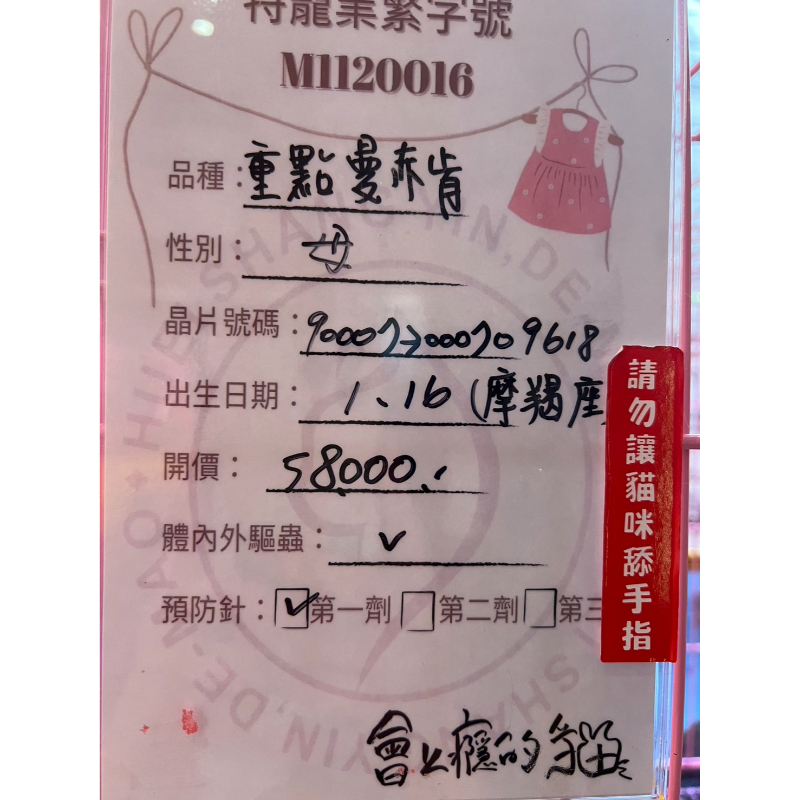 特寵業繁字號
M1120016
品種：重點曼赤肯
性別：母
晶片號碼：
出生日期：1、16（摩羯座
開價：58,000.-
體內外驅蟲：✓
預防針：☑第一劑 □第二劑 □第三
會上癮的貓
請勿讓貓咪舔手指